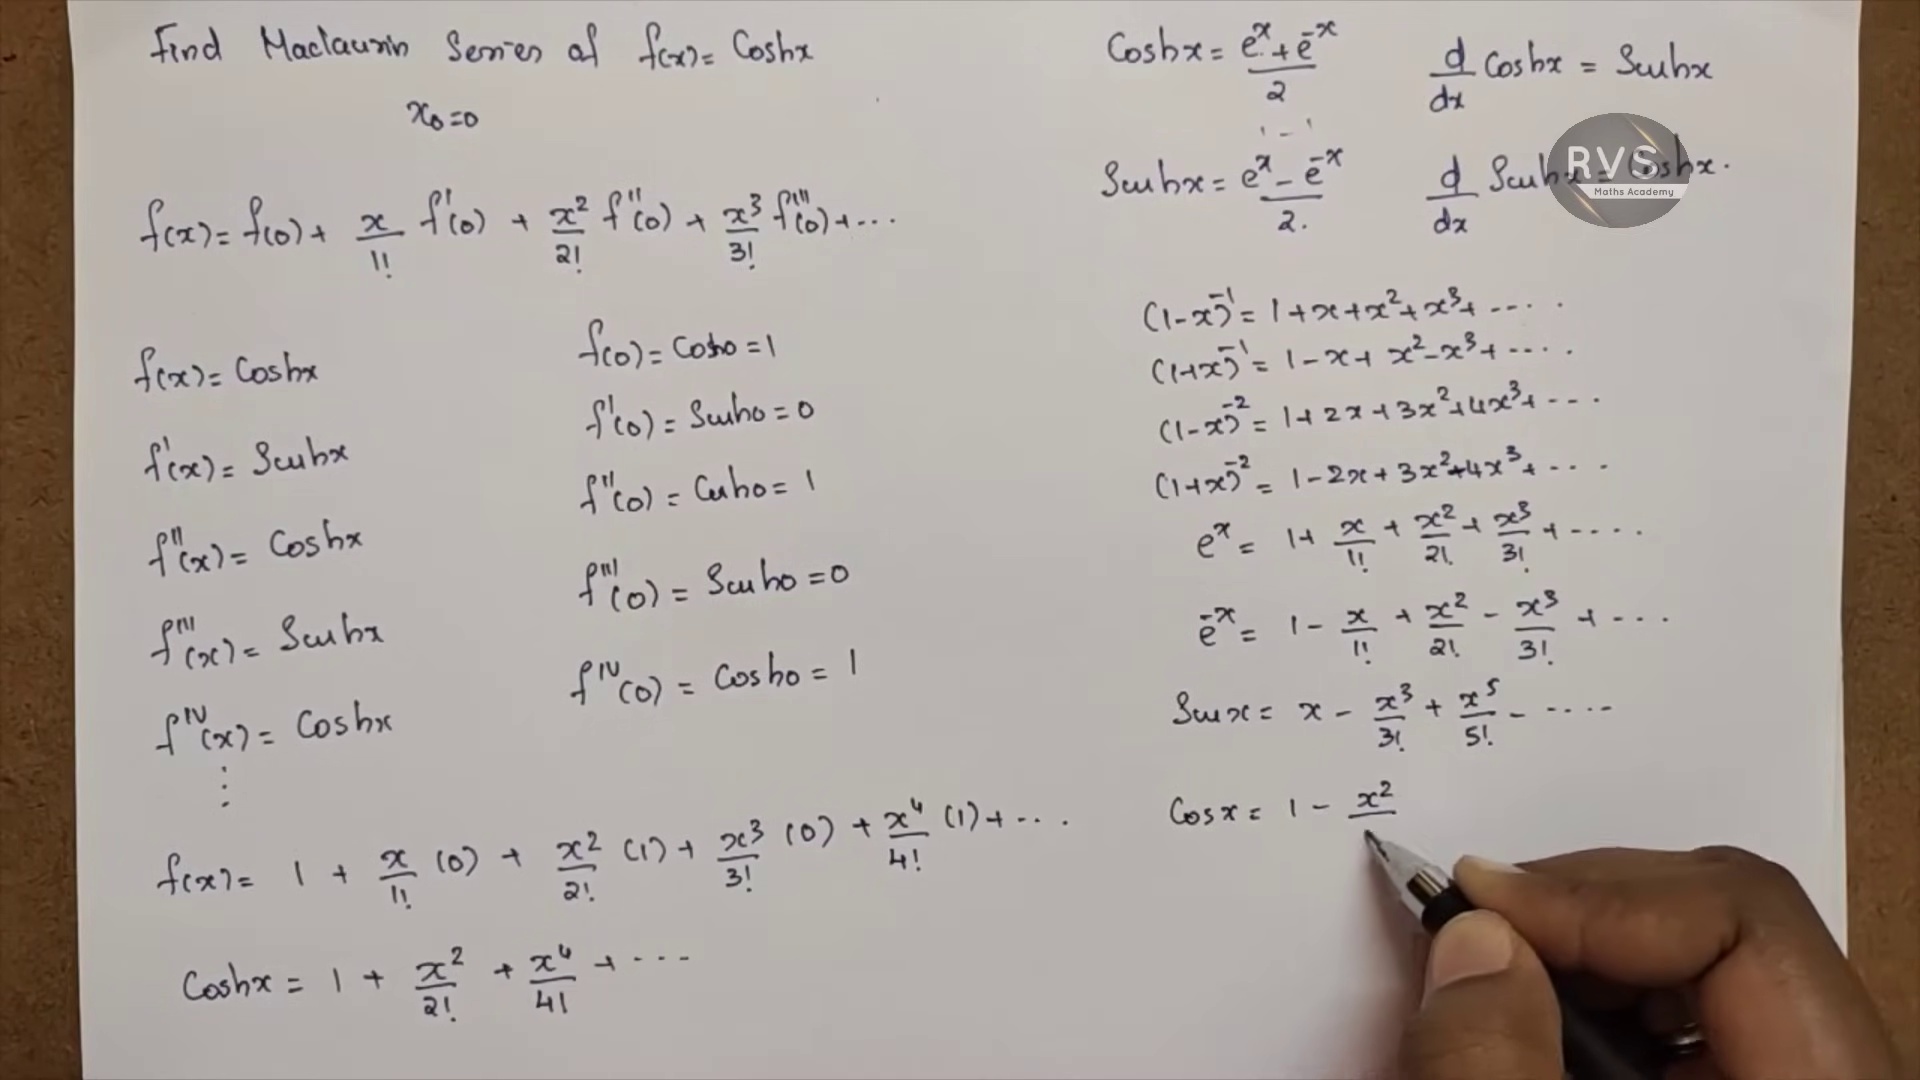 Find Maclaurin Series of f(x) = Coshx
x₀=0
f(x) = f(0) + x/1! f'(0) + x²/2! f''(0) + x³/3! f'''(0) + ...
f(x) = Coshx
f(0) = Cosh0 = 1
f'(x) = Sinhx
f'(0) = Sinh0 = 0
f''(x) = Coshx
f''(0) = Cosh0 = 1
f'''(x) = Sinhx
f'''(0) = Sinh0 = 0
f^IV(x) = Coshx
f^IV(0) = Cosh0 = 1
⋮
f(x) = 1 + x/1! (0) + x²/2! (1) + x³/3! (0) + x⁴/4! (1) + ...
Coshx = 1 + x²/2! + x⁴/4! + ...
Coshx = (e^x + e^-x)/2
d/dx Coshx = Sinhx
Sinhx = (e^x - e^-x)/2.
d/dx Sinhx = Coshx.
RVS
Maths Academy
(1-x)^-1 = 1 + x + x² + x³ + .....
(1+x)^-1 = 1 - x + x² - x³ + ....
(1-x)^-2 = 1 + 2x + 3x² + 4x³ + ...
(1+x)^-2 = 1 - 2x + 3x² - 4x³ + ....
e^x = 1 + x/1! + x²/2! + x³/3! + ....
e^-x = 1 - x/1! + x²/2! - x³/3! + ...
Sinx = x - x³/3! + x⁵/5! - .....
Cosx = 1 - x²